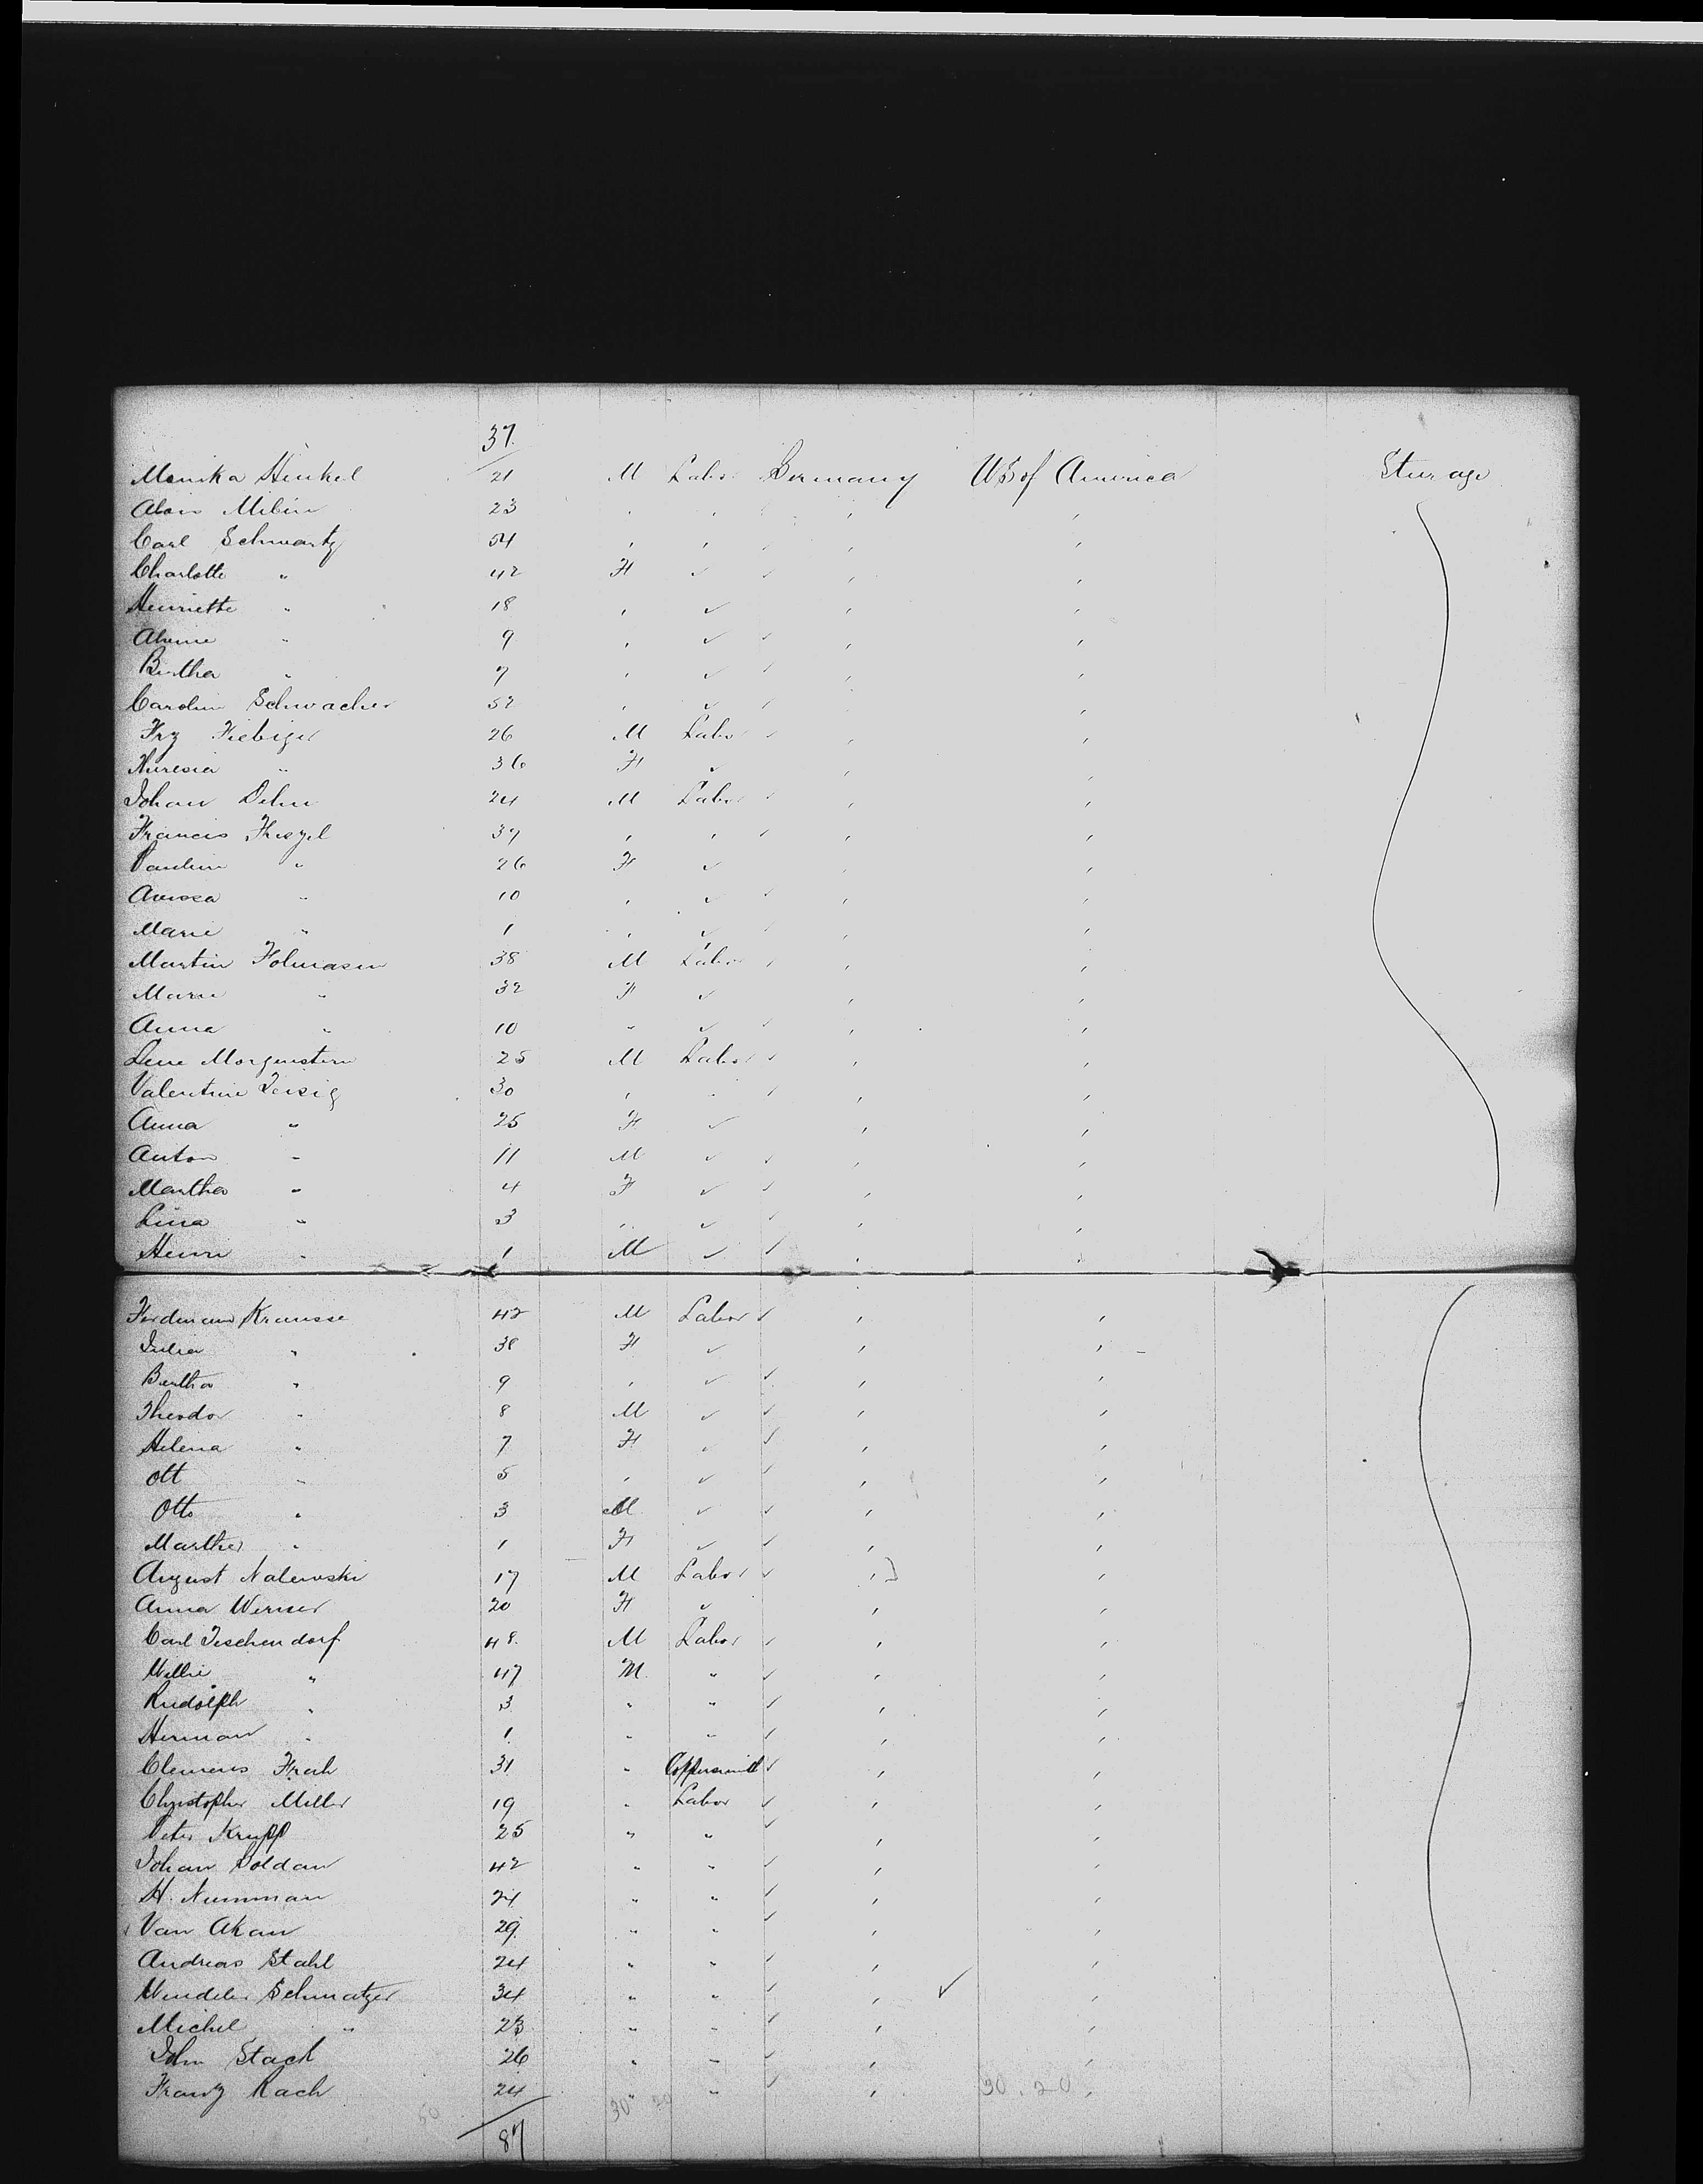 37
Monika Henkel 21 M Labor Germany US of America Sturage
Alois Milin 23 , , , ,
Carl Schwartz 54 , , , ,
Charlotte " 42 F ✓ , ,
Henriette " 18 , ✓ , ,
" 9 , ✓ , ,
Bertha " 7 , ✓ , ,
Carolin Schwacher 52 , ✓ ,
Frz Fiebiger 26 M Labor , ,
Theresia " 36 F ✓ , ,
Johan Dehn 24 M Labor , ,
Francis 39 , , , ,
Paulin " 26 F ✓ , ,
" 10 , ✓ , ,
Marie " 1 , ✓ , ,
Martin 38 M Labor , ,
Marie " 32 F ✓ , ,
Anna " 10 " ✓ , ,
Lene Morgenstern 25 M Labor , ,
Valentine 30 , , , ,
Anna " 25 F ✓ , ,
Anton " 11 M ✓ , ,
Martha " 4 F ✓ , ,
Lina " 3 , ✓ , ,
Henri " 1 M ✓ , ,
Ferdinand Krausse 42 M Labor , ,
Julia " 38 F ✓ , ,
Bertha " 9 , ✓ , ,
Theodor " 8 M ✓ , ,
Helena " 7 F ✓ , ,
Ott " 5 , ✓ , ,
Otto " 3 M ✓ , ,
Martha " 1 F ✓ , ,
August Nalewski 17 M Labor , ,
Anna Werner 20 F ✓ , ,
Carl Teschendorf 48 M Labor , ,
" 47 M " , ,
Rudolph " 3 " " , ,
Herman " 1 " " , ,
Clemens 31 " Coppersmith , ,
Christopher Miller 19 " Labor , ,
Peter Krupp 25 " " , ,
Johan Soldan 42 " " , ,
H. Numman 24 " " , ,
Van Akan 29 " " , ,
Andreas Stahl 24 " " , ,
Wendelin Schmatzer 34 " " , ✓ ,
Michel " 23 " " , ,
John Stack 26 " " , ,
Franz Rach 24 " " , 30.20 ,
50 30 20
87